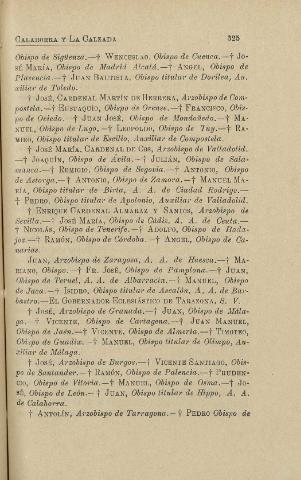 CALAHORRA Y LA CALZADA 325
Obispo de Sigüenza.—† WENCESLAO, Obispo de Cuenca.—† JO-
SÉ MARÍA, Obispo de Madrid Alcalá.—† ANGEL, Obispo de
Plasencia.—† JUAN BAUTISTA, Obispo titular de Dorilea, Au-
xiliar de Toledo.
† JOSÉ, CARDENAL MARTÍN DE HERRERA, Arzobispo de Com-
postela.—† EUSTAQUIO, Obispo de Orense.—† FRANCISCO, Obis-
po de Oviedo.—† JUAN JOSÉ, Obispo de Mondoñedo.—† MA-
NUEL, Obispo de Lugo.—† LEOPOLDO, Obispo de Tuy.—† RA-
MIRO, Obispo titular de Escilio, Auxiliar de Compostela.
† JOSÉ MARÍA, CARDENAL DE COS, Arzobispo de Valladolid.
—† JOAQUÍN, Obispo de Avila.—† JULIÁN, Obispo de Sala-
manca.—† REMIGIO, Obispo de Segovia.—† ANTONIO, Obispo
de Astorga.—† ANTONIO, Obispo de Zamora.—† MANUEL MA-
RÍA, Obispo titular de Birta, A. A. de Ciudad Rodrigo.—
† PEDRO, Obispo titular de Apolonia, Auxiliar de Valladolid.
† ENRIQUE CARDENAL ALMARAZ Y SANTOS, Arzobispo de
Sevilla.—† JOSÉ MARÍA, Obispo de Cádiz, A. A. de Ceuta.—
† NICOLÁS, Obispo de Tenerife.—† ADOLFO, Obispo de Bada-
joz.—† RAMÓN, Obispo de Córdoba.—† ANGEL, Obispo de Ca-
narias.
JUAN, Arzobispo de Zaragoza, A. A. de Huesca.—† MA-
RIANO, Obispo.—† FR. JOSÉ, Obispo de Pamplona.—† JUAN,
Obispo de Teruel, A. A. de Albarracín.—† MANUEL, Obispo
de Jaca.—† ISIDRO, Obispo titular de Ascalón, A. A. de Bar-
bastro.—EL GOBERNADOR ECLESIÁSTICO DE TARAZONA, S. V.
† JOSÉ, Arzobispo de Granada.—† JUAN, Obispo de Mála-
ga.—† VICENTE, Obispo de Cartagena.—† JUAN MANUEL,
Obispo de Jaén.—† VICENTE, Obispo de Almería.—† TIMOTEO,
Obispo de Guadix.—† MANUEL, Obispo titular de Olimpo, Au-
xiliar de Málaga.
† JOSÉ, Arzobispo de Burgos.—† VICENTE SANTIAGO, Obis-
po de Santander.—† RAMÓN, Obispo de Palencia.—† PRUDEN-
CIO, Obispo de Vitoria.—† MANUEL, Obispo de Osma.—† JO-
SÉ, Obispo de León.—† JUAN, Obispo titular de Hippo, A. A.
de Calahorra.
† ANTOLÍN, Arzobispo de Tarragona.—† PEDRO Obispo de